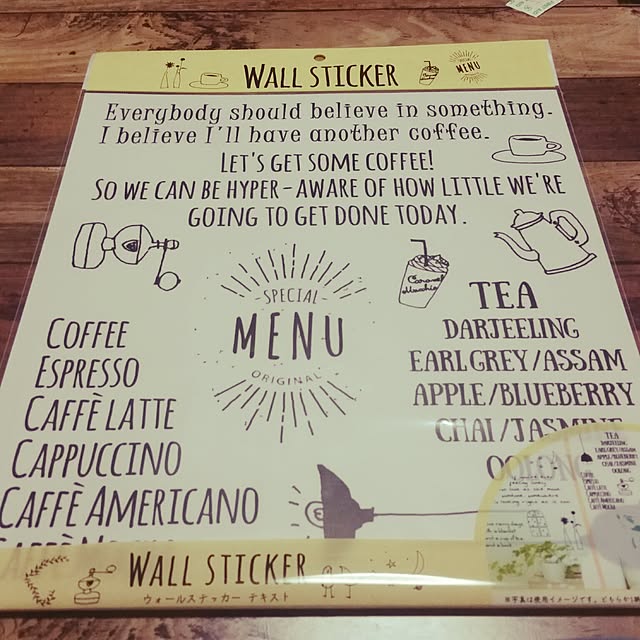 WALL STICKER
SPECIAL
MENU
Everybody should believe in something.
I believe I'll have another coffee.
LET'S GET SOME COFFEE!
SO WE CAN BE HYPER-AWARE OF HOW LITTLE WE'RE
GOING TO GET DONE TODAY.
Caramel
SPECIAL
MENU
ORIGINAL
COFFEE
ESPRESSO
CAFFÈ LATTE
CAPPUCCINO
CAFFÈ AMERICANO
TEA
DARJEELING
EARL GREY/ASSAM
APPLE/BLUEBERRY
CHAI/JASMINE
OOLONG
TEA
DARJEELING
EARL GREY/ASSAM
APPLE/BLUEBERRY
CHAI/JASMINE
OOLONG
COFFEE
ESPRESSO
CAFFÈ LATTE
CAPPUCCINO
CAFFÈ AMERICANO
CAFFÈ MOCHA
WALL STICKER
ウォールステッカー テキスト
※写真は使用イメージです。